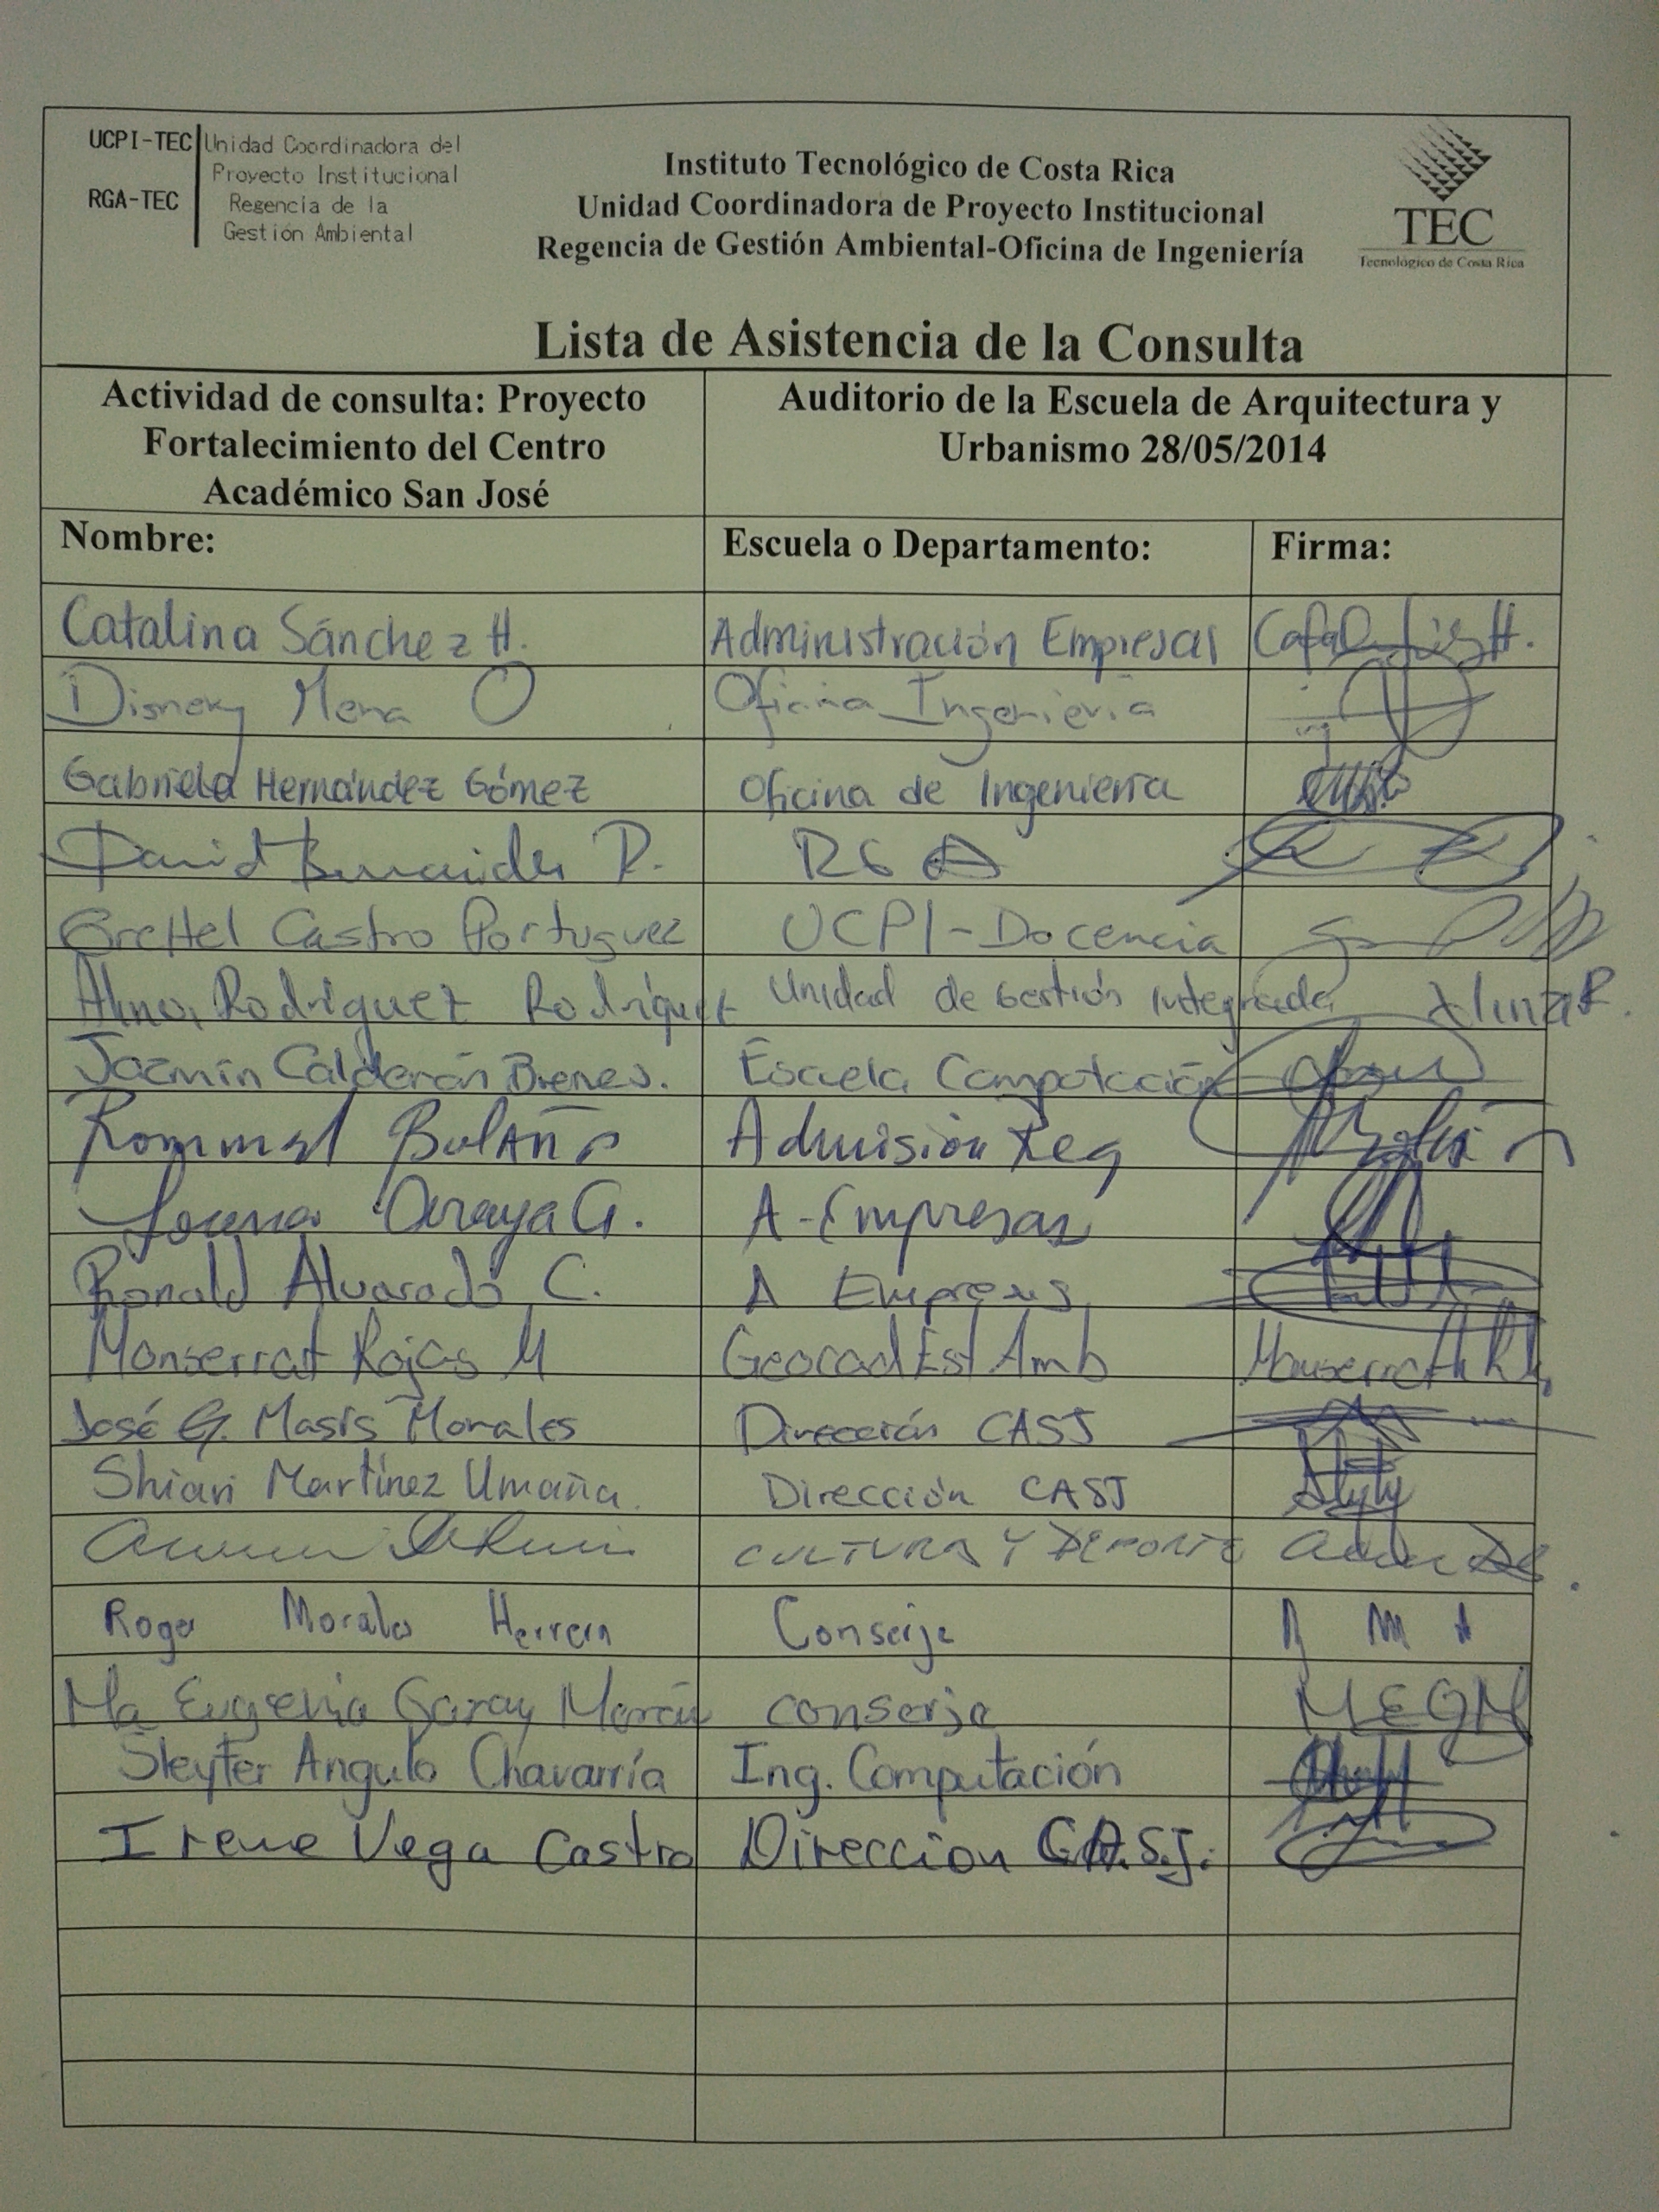 UCPI-TEC Unidad Coordinadora del
Proyecto Institucional
RGA-TEC Regencia de la
Gestión Ambiental
Instituto Tecnológico de Costa Rica
Unidad Coordinadora de Proyecto Institucional
Regencia de Gestión Ambiental-Oficina de Ingeniería
TEC
Tecnológico de Costa Rica
Lista de Asistencia de la Consulta
Actividad de consulta: Proyecto
Fortalecimiento del Centro
Académico San José
Auditorio de la Escuela de Arquitectura y
Urbanismo 28/05/2014
Nombre: Escuela o Departamento: Firma:
Catalina Sánchez H. Administración Empresas
Disney Mena O Oficina Ingenieria
Gabriela Hernández Gómez Oficina de Ingenieria
David Benavides R. RGA
Grettel Castro Portuguez UCPI-Docencia
Alina Rodriguez Rodríguez Unidad de Gestión Integrada Alina R.
Jazmín Calderón Brenes. Escuela Computación
Rommel Bolaños Admisión Reg
Araya G. A-Empresas
Ronald Alvarado C. A Empresas
Monserrat Rojas M Geocad Est Amb
José G. Masís Morales Dirección CASJ
Shiari Martínez Umaña. Dirección CASJ
CULTURA Y DEPORTE
Roger Morales Herrera Conserje
Ma Eugenia Garay Conserje MEGM
Sleyter Angulo Chavarría Ing. Computación
Irene Vega Castro Direccion C.A.S.J.